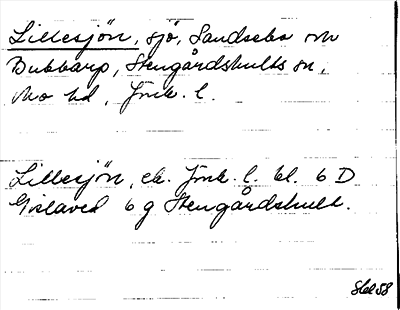 Lillesjön, sjö, Sandsebo och
Bubbarp, Stengårdshults sn,
Mo hd, Jönk. l.
Lillesjön, ek. Jönk. l. bl. 6 D
Gislaved 6 g Stengårdshult.
58